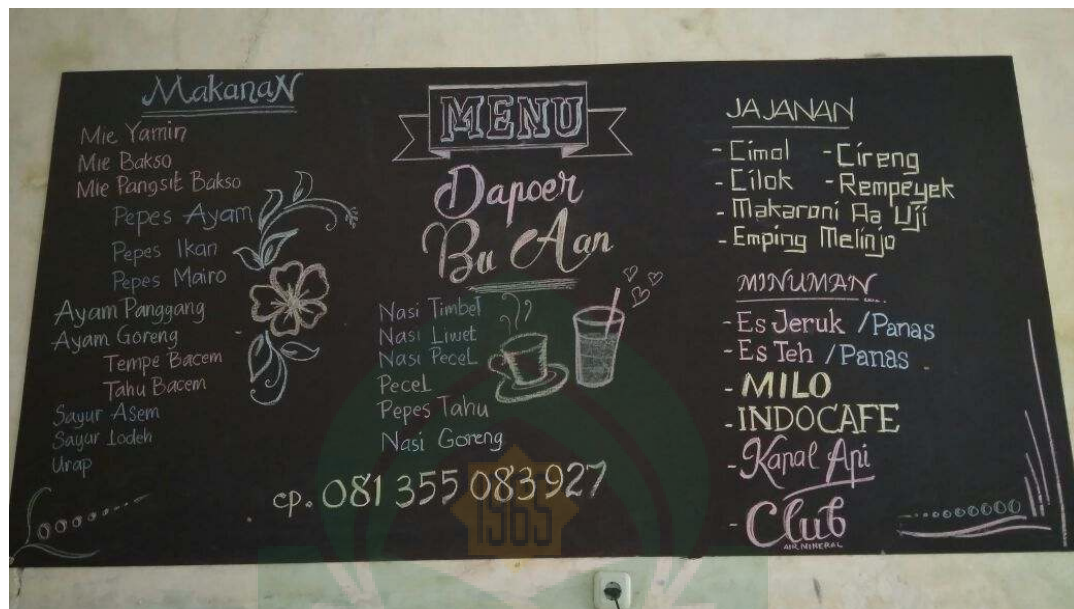 MakanaN
Mie Yamin
Mie Bakso
Mie Pangsit Bakso
Pepes Ayam
Pepes Ikan
Pepes Mairo
Ayam Panggang
Ayam Goreng
Tempe Bacem
Tahu Bacem
Sayur Asem
Sayur Lodeh
Urap
MENU
Dapoer
Bu Aan
Nasi Timbel
Nasi Liwet
Nasi Pecel
Pecel
Pepes Tahu
Nasi Goreng
cp. 081 355 083 927
JAJANAN
- Cimol - Cireng
- Cilok - Rempeyek
- Makaroni Aa Uji
- Emping Melinjo
MINUMAN
- Es Jeruk / Panas
- Es Teh / Panas
- MILO
- INDOCAFE
- Kapal Api
- Club
AIR MINERAL
1965